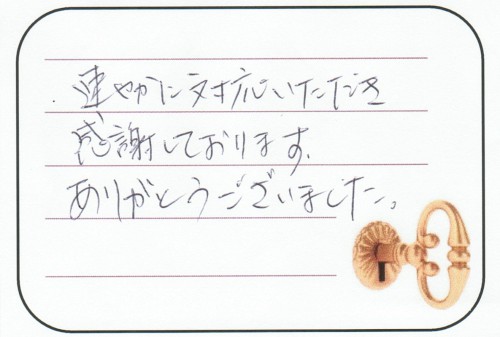 速やかに対応いただき
感謝しております。
ありがとうございました。